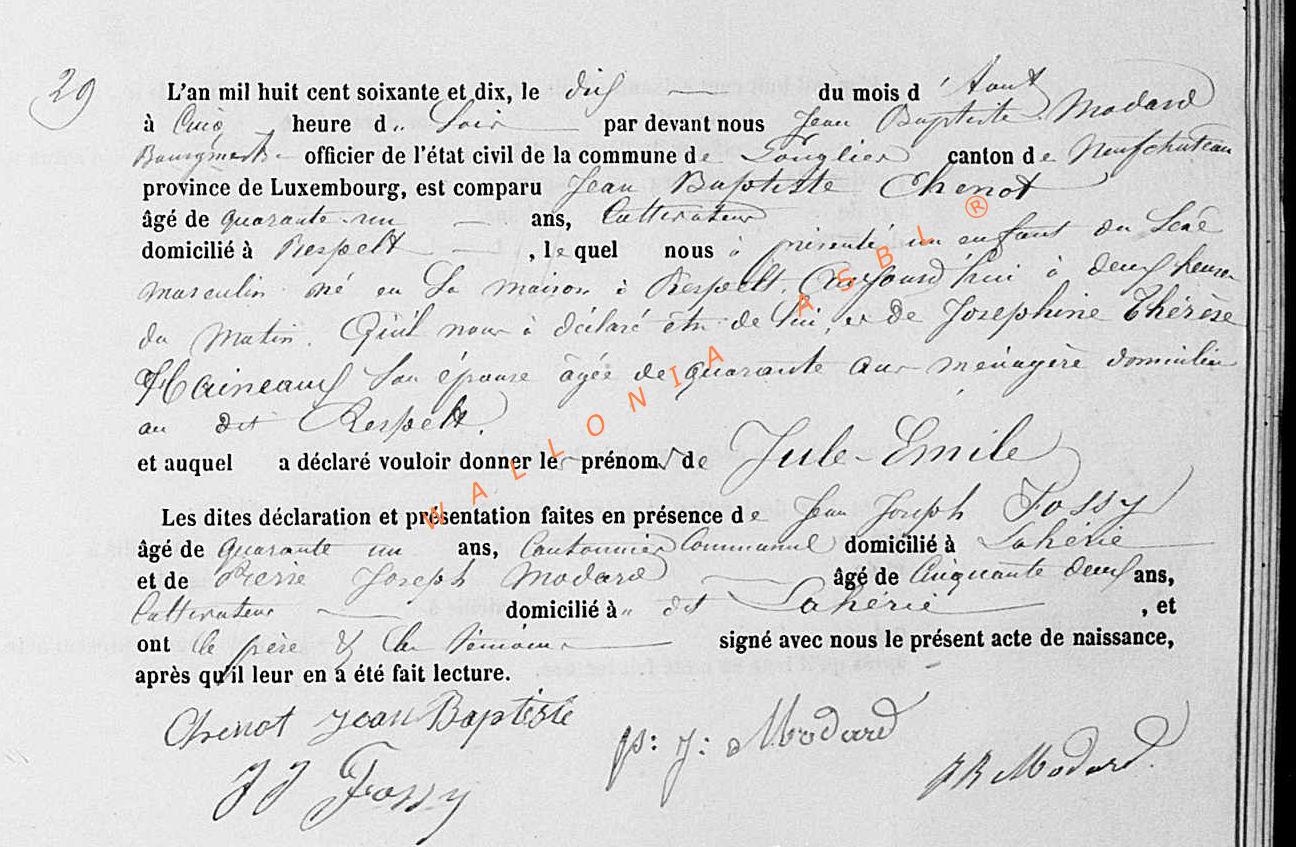 29
L'an mil huit cent soixante et dix, le dix du mois d'Aout
à Cinq heure d.. Soir par devant nous Jean Baptiste Modard
Bourgmestre officier de l'état civil de la commune de Longlier canton de Neufchateau
province de Luxembourg, est comparu Jean Baptiste Chenot
âgé de quarante un ans, Cultivateur
domicilié à Respelt, lequel nous à présenté un enfant du Sexe
masculin né en Sa maison à Respelt, Aujourd'hui à deux heures
du Matin. Qu'il nous à déclaré être de lui, et de Josephine Thérèse
Haineaux Son épouse âgée de quarante ans ménagère domiciliée
au dit Respelt.
et auquel a déclaré vouloir donner les prénoms de Jule-Emile
Les dites déclaration et présentation faites en présence de Jean Joseph Fossy
âgé de Quarante un ans, Cantonnier Communal domicilié à Lahérie
et de Pierre Joseph Modard âgé de Cinquante deux ans,
Cultivateur domicilié à dit Lahérie, et
ont le père & les témoins signé avec nous le présent acte de naissance,
après qu'il leur en a été fait lecture.
Chenot Jean Baptiste
p: j: Modard
JB Modard.
J J Fossy
WALLONIA ASBL ®